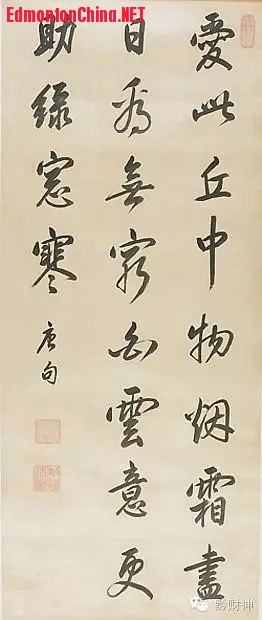 EdmontonChina.NET
愛此丘中物烟霜盡
日看無窮白雲意更
助綠窓寒
唐句
黔财神